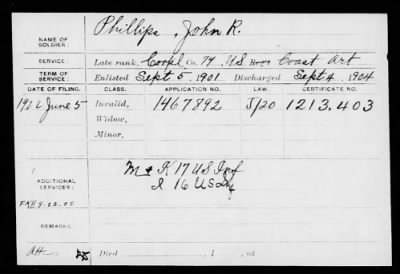 Phillips, John R.
NAME OF SOLDIER:
SERVICE: Late rank, Corpl Co. 74, U.S. Coast Art
TERM OF SERVICE: Enlisted Sept 5, 1901 Discharged Sept 4, 1904
DATE OF FILING. CLASS. APPLICATION NO. LAW. CERTIFICATE NO.
June 5 Invalid, 1467892 1213.403
Widow,
Minor,
M & K 17 US Inf
ADDITIONAL SERVICES: I 16 US Inf
REMARKS:
Died , 1 , at